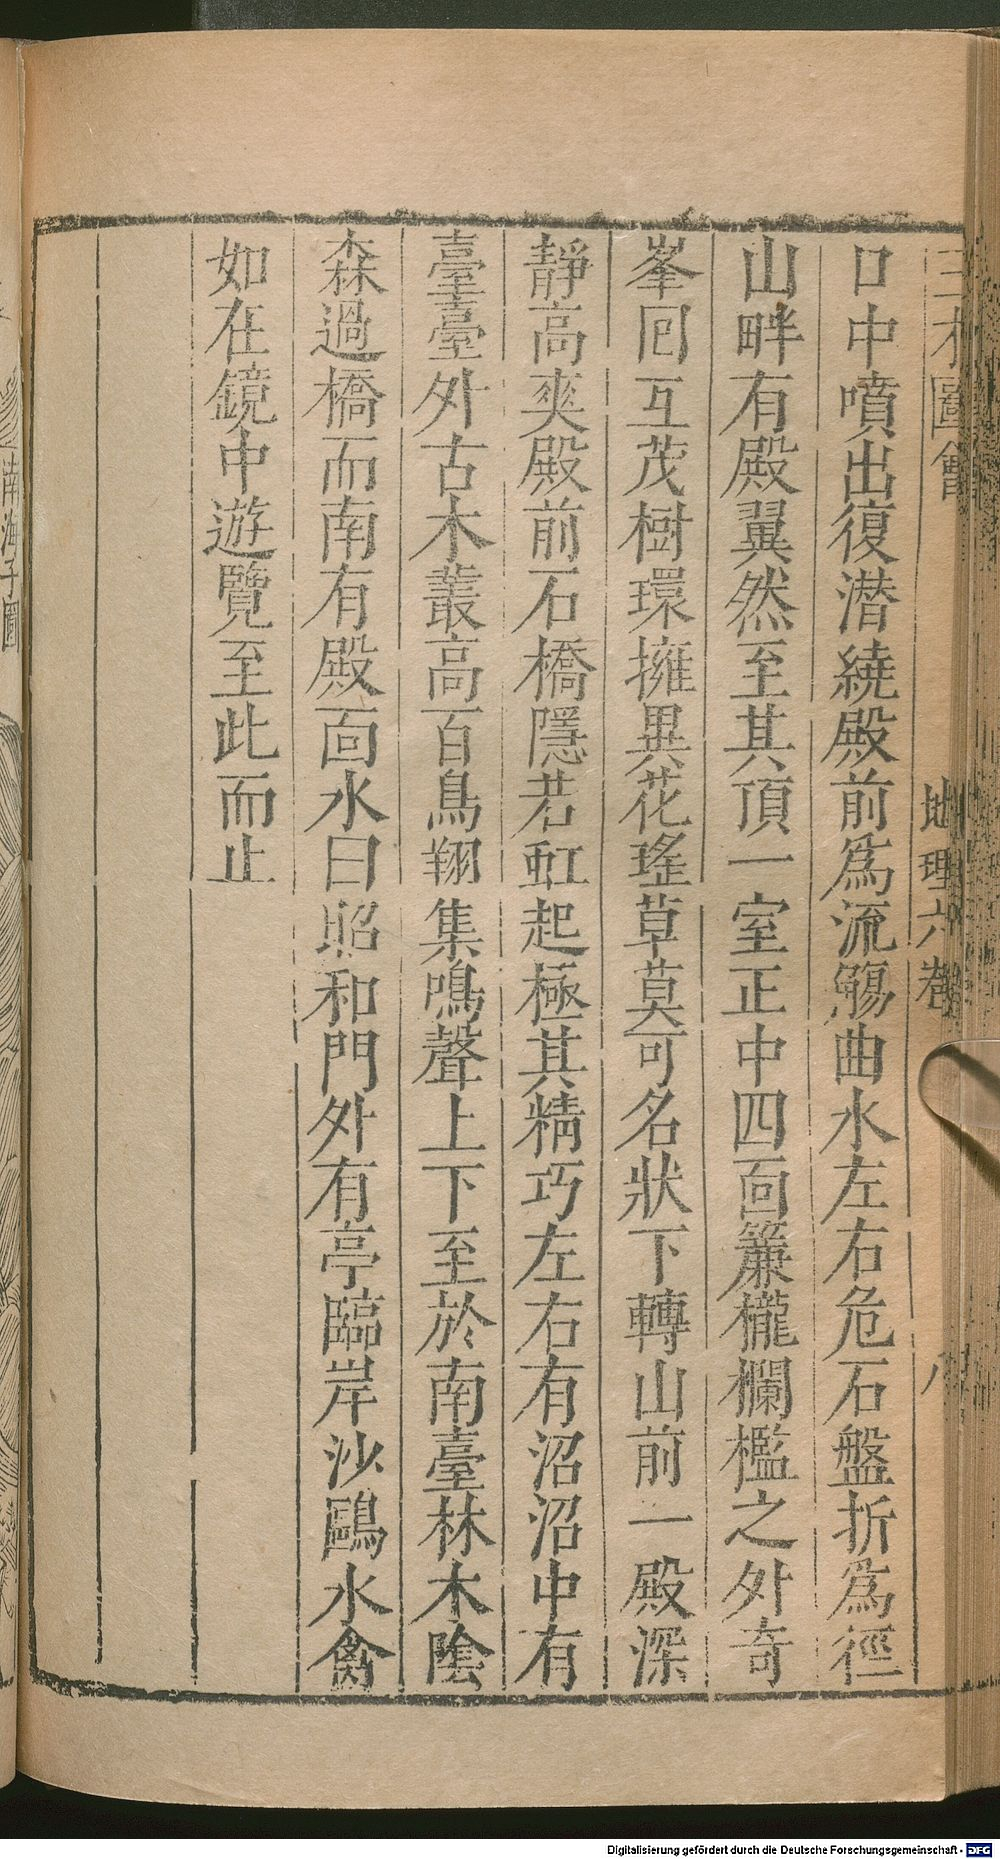 三才圖會
地理六卷
八
口中噴出復潛繞殿前爲流觴曲水左右危石盤折爲徑
山畔有殿翼然至其頂一室正中四面簾櫳欄檻之外奇
峯囘互茂樹環擁異花瑤草莫可名狀下轉山前一殿深
靜高爽殿前石橋隱若虹起極其精巧左右有沼沼中有
臺臺外古木叢高百鳥翔集鳴聲上下至於南臺林木陰
森過橋而南有殿面水曰昭和門外有亭臨岸沙鷗水禽
如在鏡中遊覽至此而止
南海子圖
Digitalisierung gefördert durch die Deutsche Forschungsgemeinschaft - DFG